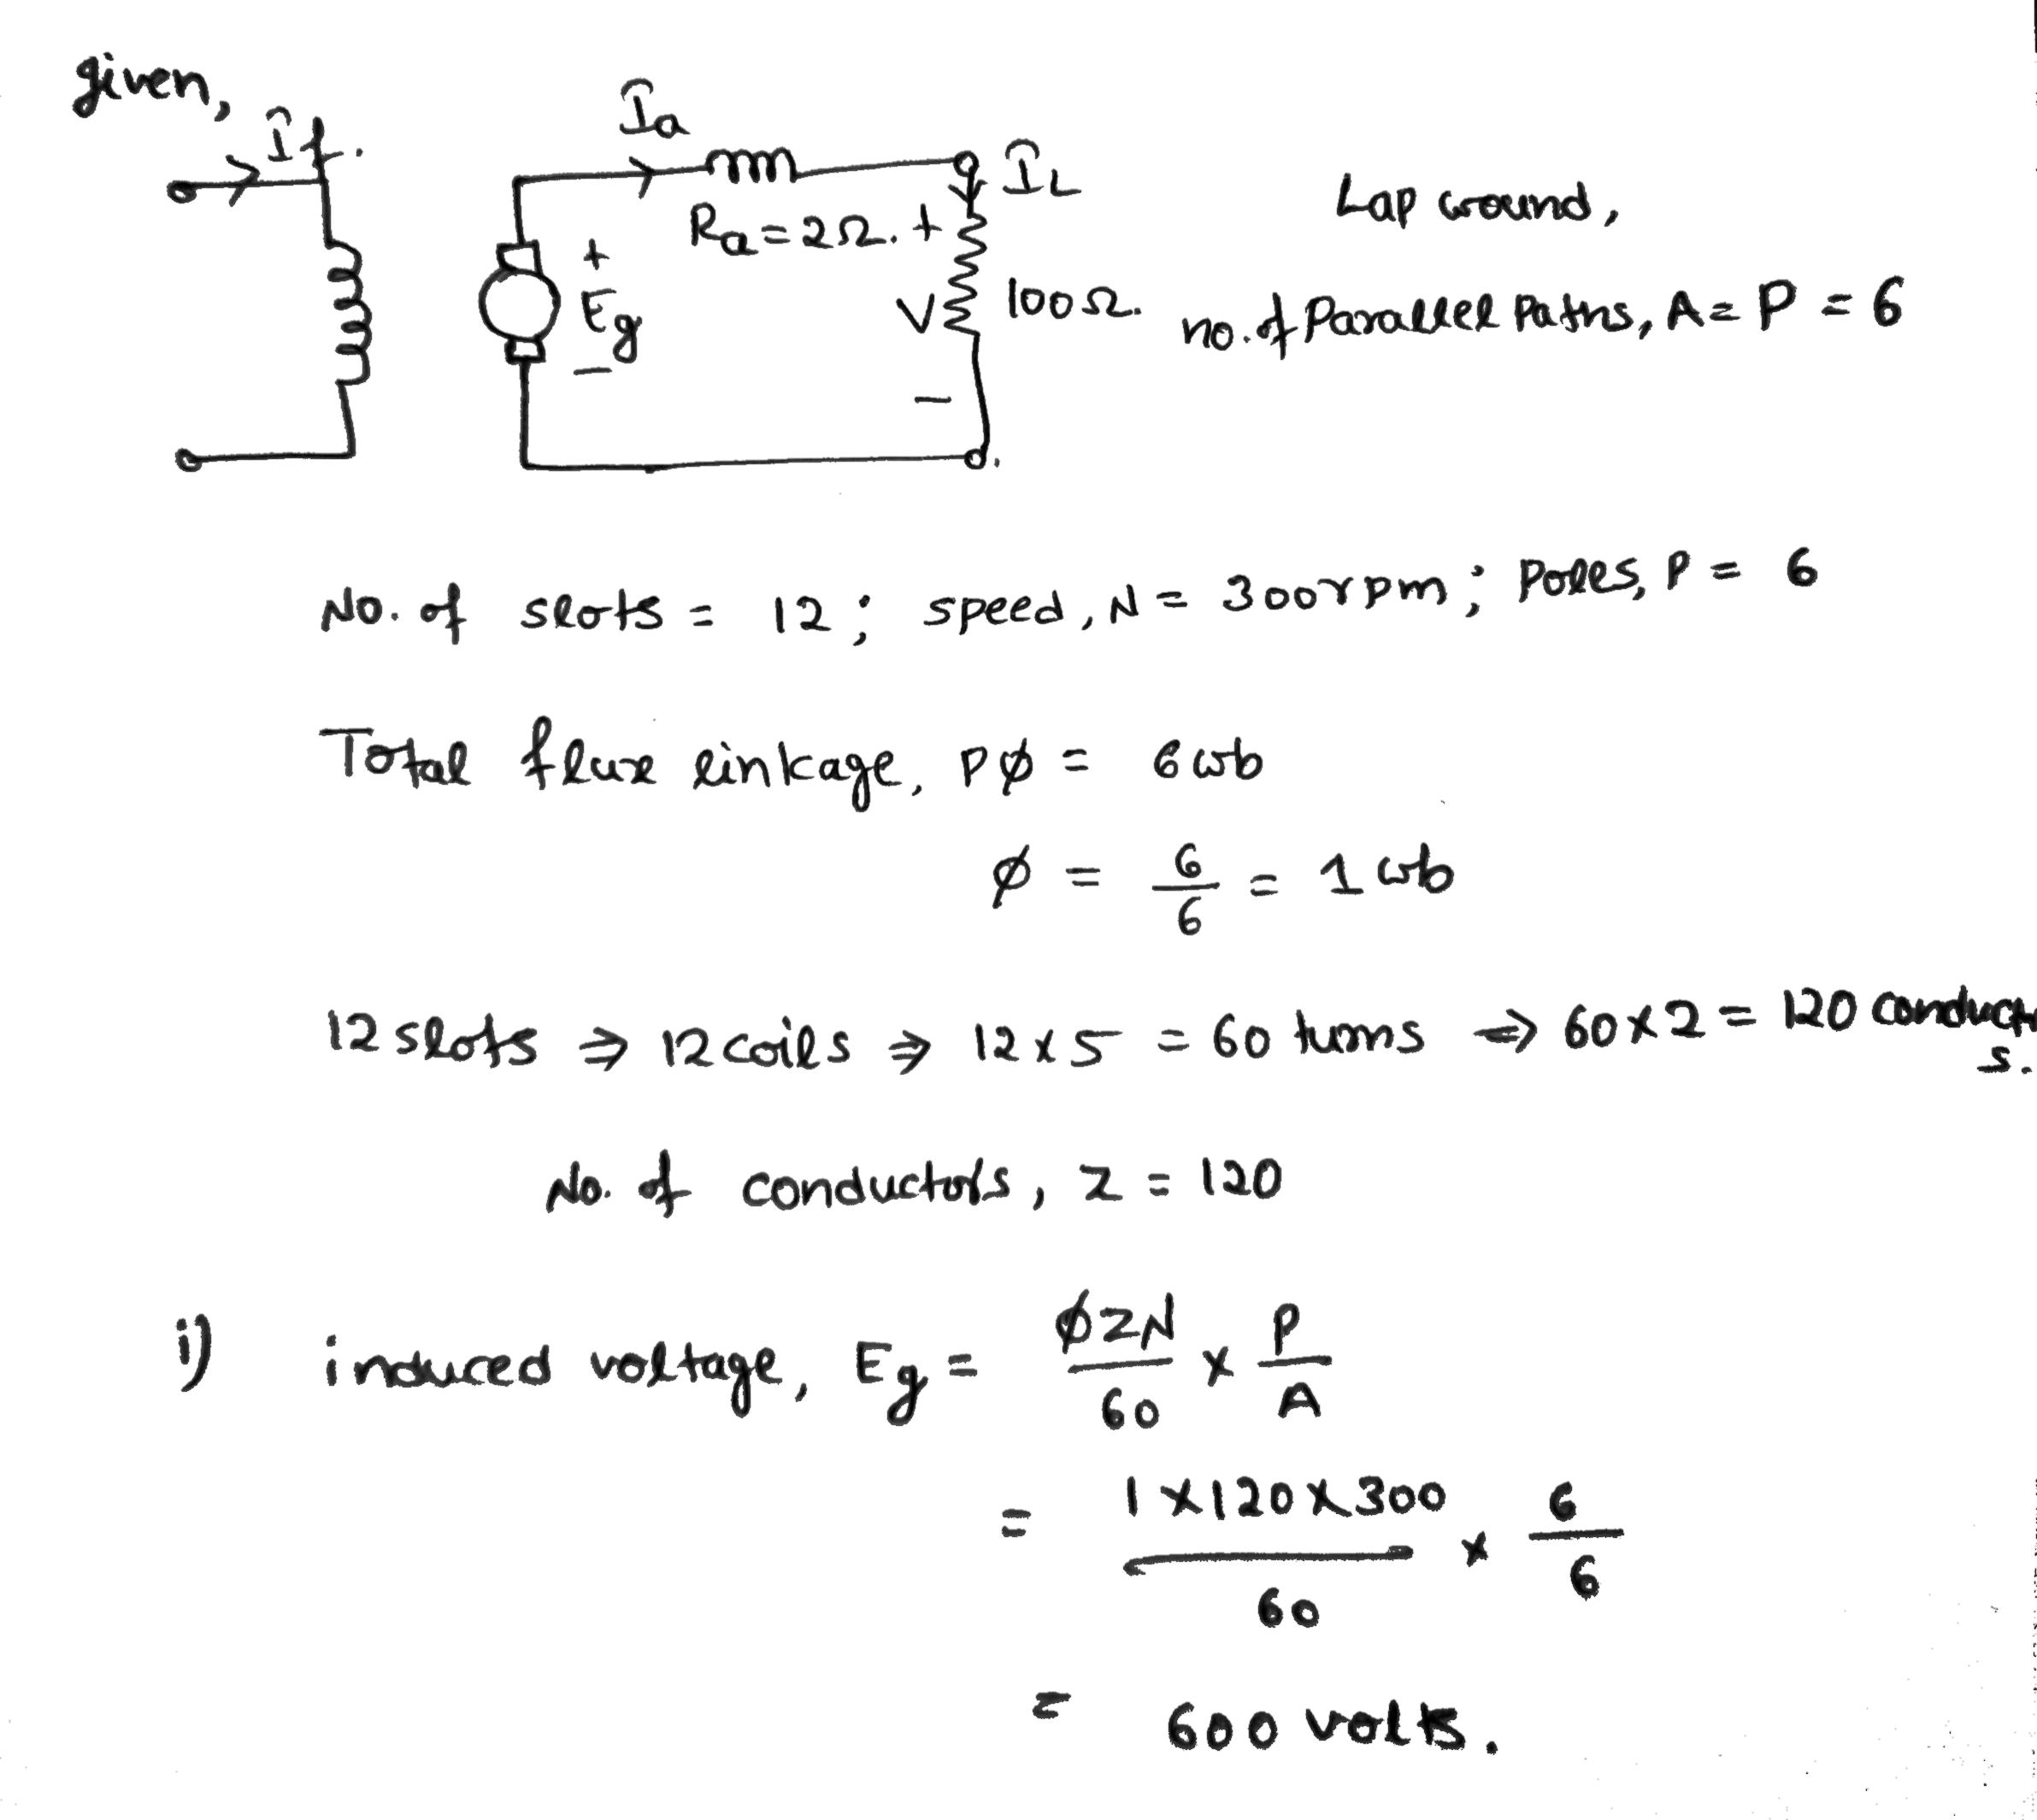 given,
If.
Ia
IL
Ra=2Ω.
+
Eg
-
+
V
-
100Ω.
Lap wound,
no. of Parallel Paths, A = P = 6
No. of slots = 12 ; speed, N = 300rpm ; Poles, P = 6
Total flux linkage, Pϕ = 6wb
ϕ = 6/6 = 1 wb
12 slots ⇒ 12 coils ⇒ 12x5 = 60 turns ⇒ 60x2 = 120 conductors.
No. of conductors, Z = 120
i) induced voltage, Eg = ϕZN/60 x P/A
= 1x120x300/60 x 6/6
= 600 volts.